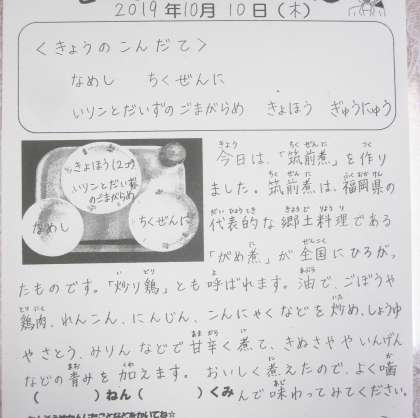 2019年10月10日(木)
<きょうのこんだて>
なめし ちくぜんに
いりことだいずのごまがらめ きょほう ぎゅうにゅう
きょほう(2つ)
いりことだい豆
のごまがらめ
なめし
ちくぜんに
今日は、「筑前煮」を作り
ました。筑前煮は、福岡県の
代表的な郷土料理である
「がめ煮」が全国にひろがっ
たものです。「炒り鶏」とも呼ばれます。油で、ごぼうや
鶏肉、れんこん、にんじん、こんにゃくなどを炒め、しょうゆ
やさとう、みりんなどで甘辛く煮て、きぬさややいんげん
などの青みを加えます。おいしく煮えたので、よく噛
( )ねん( )くみ んで味わってみてください。